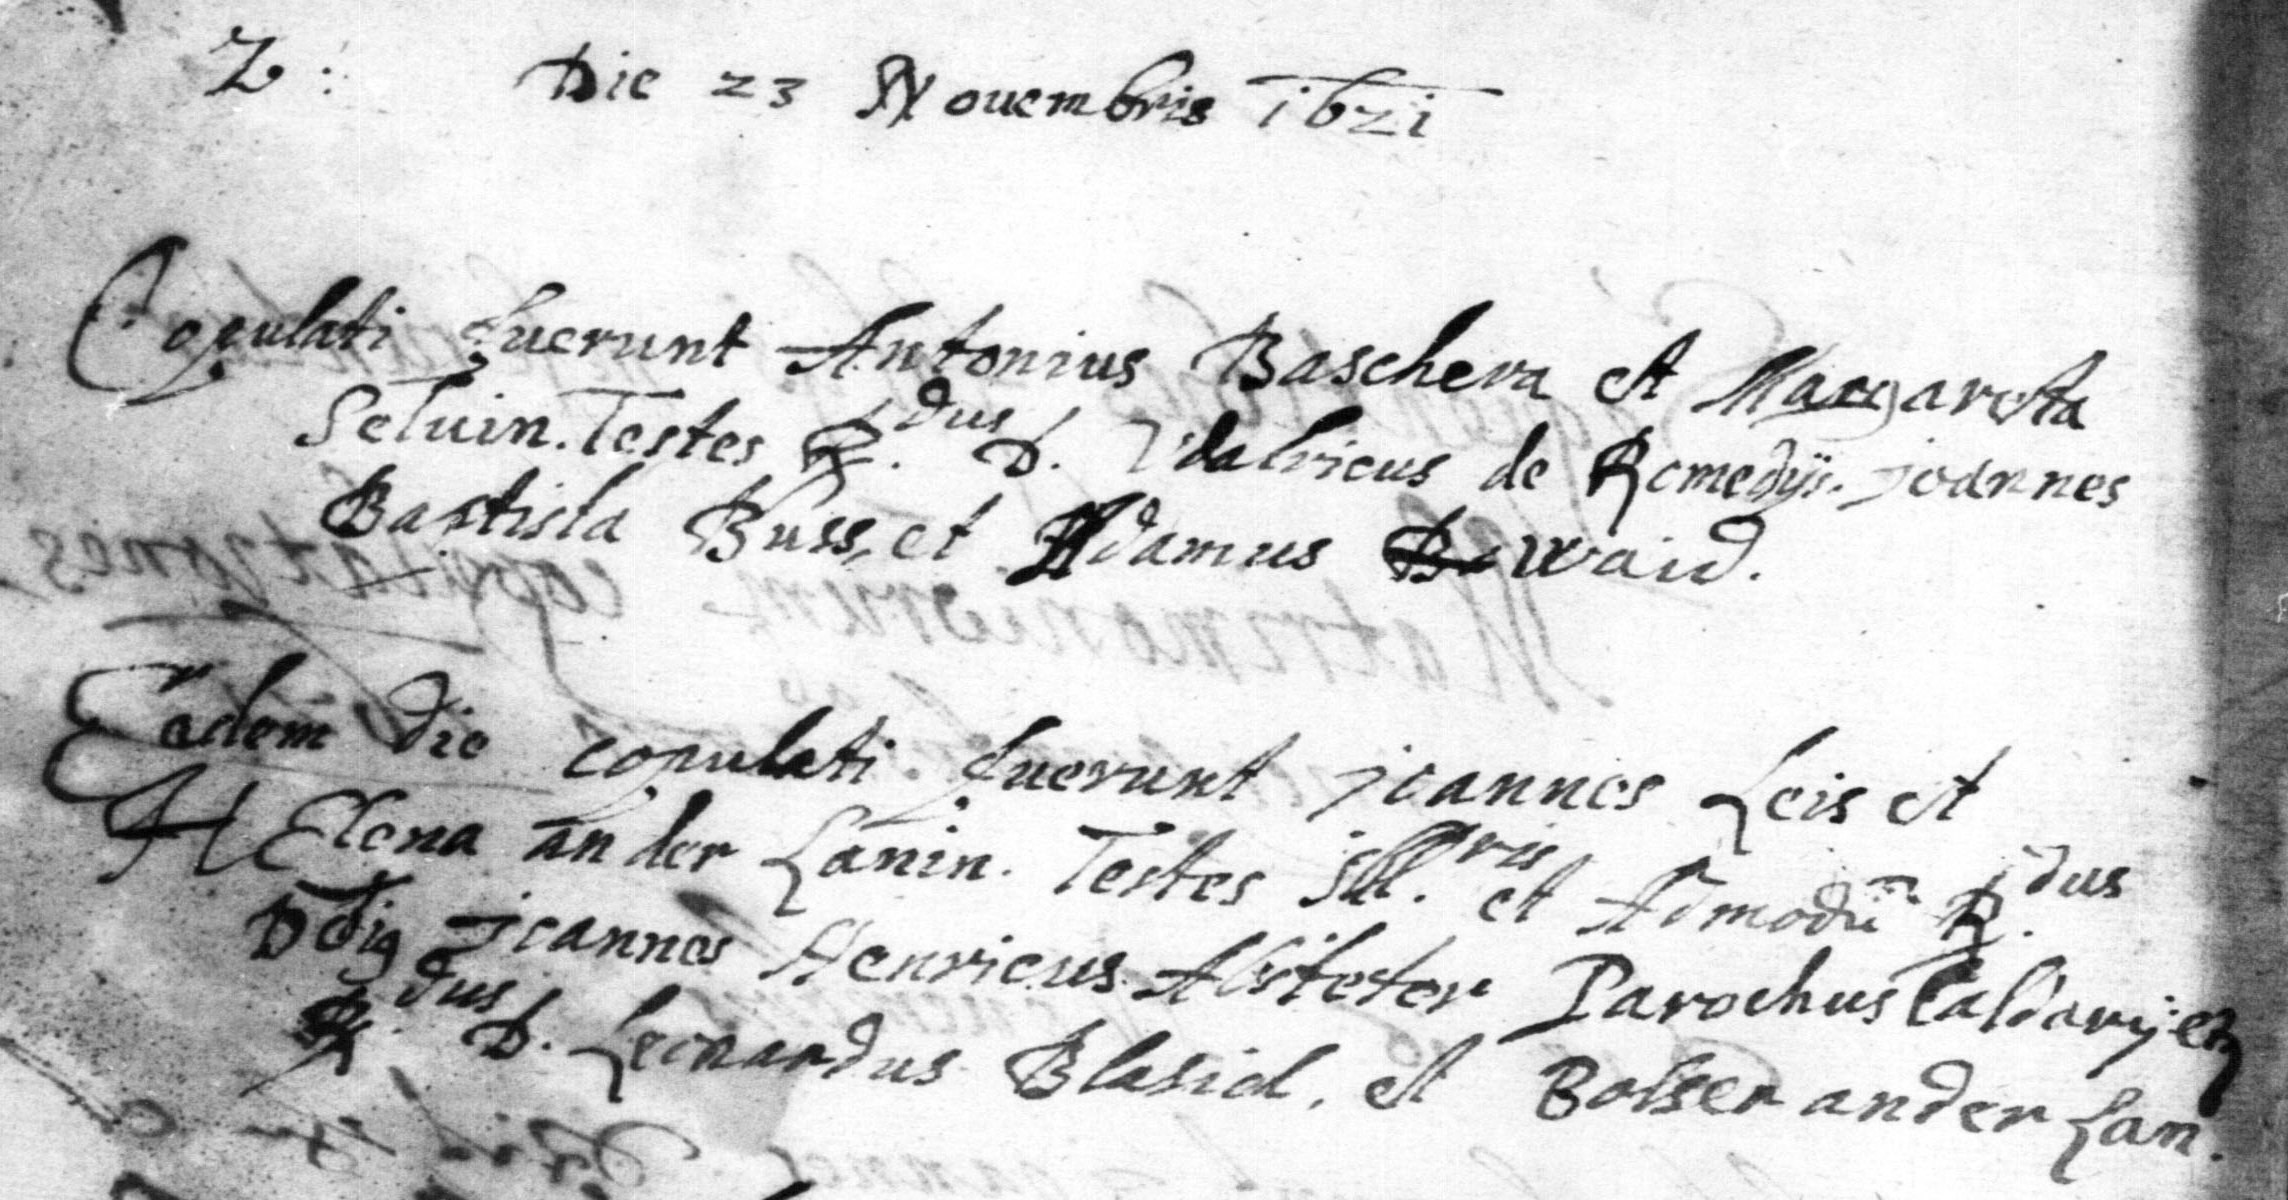 2: Die 23 Nouembris 1621
Copulati fuerunt Antonius Baschera et Margareta
Seluin. Testes R.dus D. Vdalricus de Romedijs. joannes
Baptista Buss, et Adamus Waid.
Eadem die copulati fuerunt joannes Leis et
HElena an der Lanin. Testes Ill.ris et Admodū R.dus
D joannes Henricus Absteter Parochus Caldarij et
R.dus D. Leonardus Blasiol, et Bolser ander Lan.